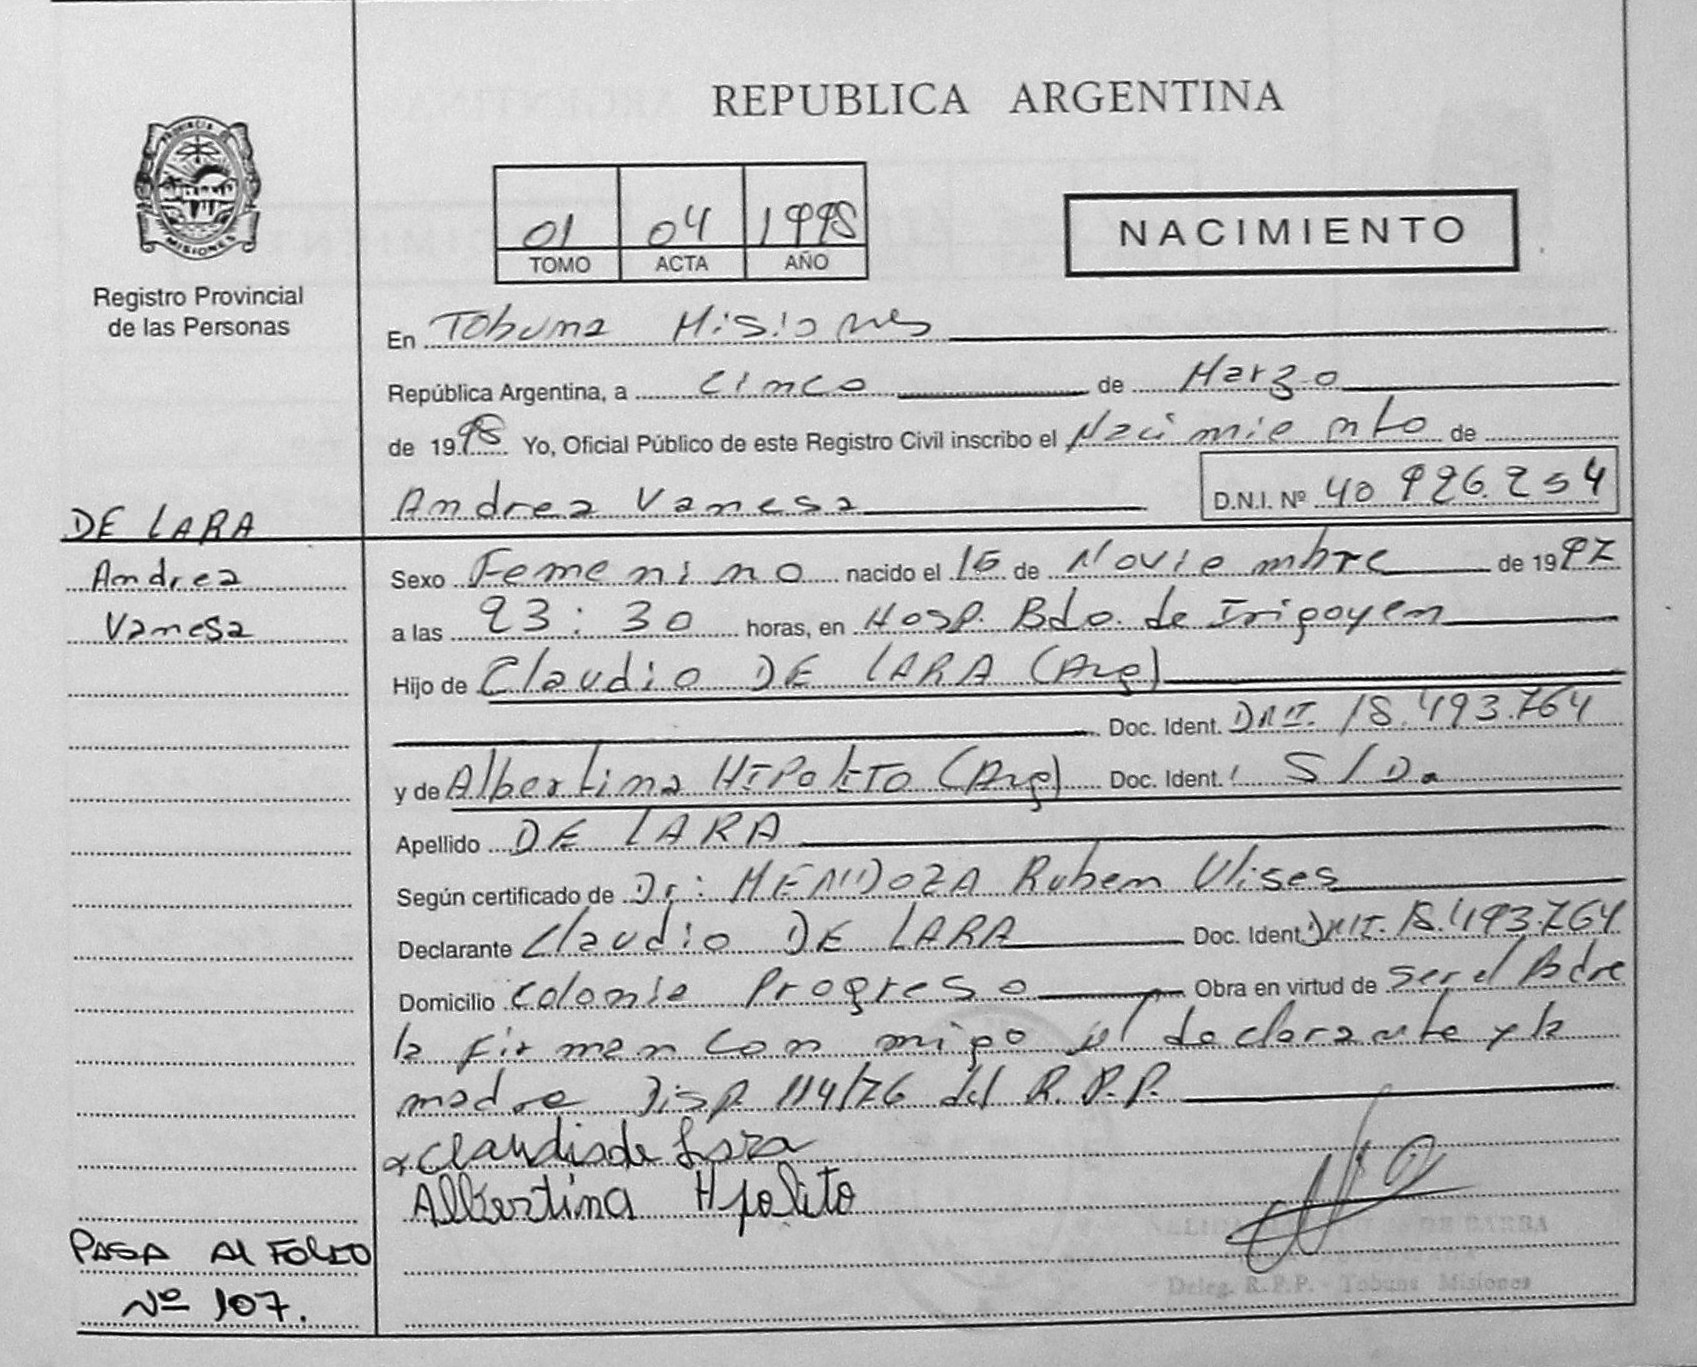 PROVINCIA DE
MISIONES
Registro Provincial
de las Personas
REPUBLICA ARGENTINA
01 04 1998
TOMO ACTA AÑO
NACIMIENTO
En Tobuna Misiones
República Argentina, a cinco de Marzo
de 1998 Yo, Oficial Público de este Registro Civil inscribo el Nacimiento de
Andrea Vanesa D.N.I. Nº 40 926.254
DE LARA
Andrea
Vanesa
Sexo Femenino nacido el 15 de Noviembre de 1997
a las 23:30 horas, en Hosp. Bdo. de Irigoyen
Hijo de Claudio DE LARA (Arg)
Doc. Ident. DNI. 18.493.764
y de Albertina HIPOLITO (Arg) Doc. Ident. S/D.
Apellido DE LARA
Según certificado de Dr: MENDOZA Ruben Ulises
Declarante Claudio DE LARA Doc. Ident DNI. 18.493.764
Domicilio Colonia Progreso Obra en virtud de ser el Padre
la firman con migo el declarante y la
madre Disp. 114/76 del R.P.P.
Claudio de Lara
Albertina Hipolito
PASA AL FOLIO
Nº 107.
DE BARRA
Deleg. R.P.P. - Tobuna Misiones